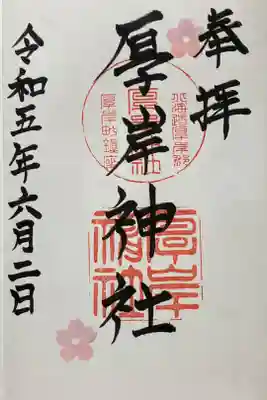 奉拝
厚岸神社
令和五年六月二日
北海道厚岸郡
厚岸町鎮座
厚岸神社
厚岸神社